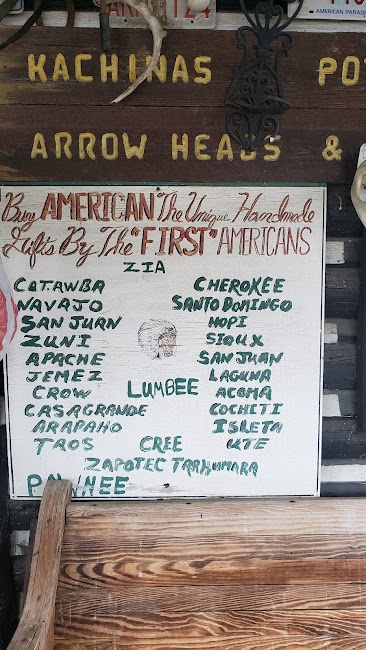 AMERICAN PARAD
KACHINAS PO
ARROW HEADS &
Buy AMERICAN The Unique Handmade
Gifts By The "FIRST" AMERICANS
ZIA
CATAWBA CHEROKEE
NAVAJO SANTO DOMINGO
SAN JUAN HOPI
ZUNI SIOUX
APACHE SAN JUAN
JEMEZ LAGUNA
CROW LUMBEE ACOMA
CASAGRANDE COCHITI
ARAPAHO ISLETA
TAOS CREE UTE
ZAPOTEC TARHUMARA
PAWNEE